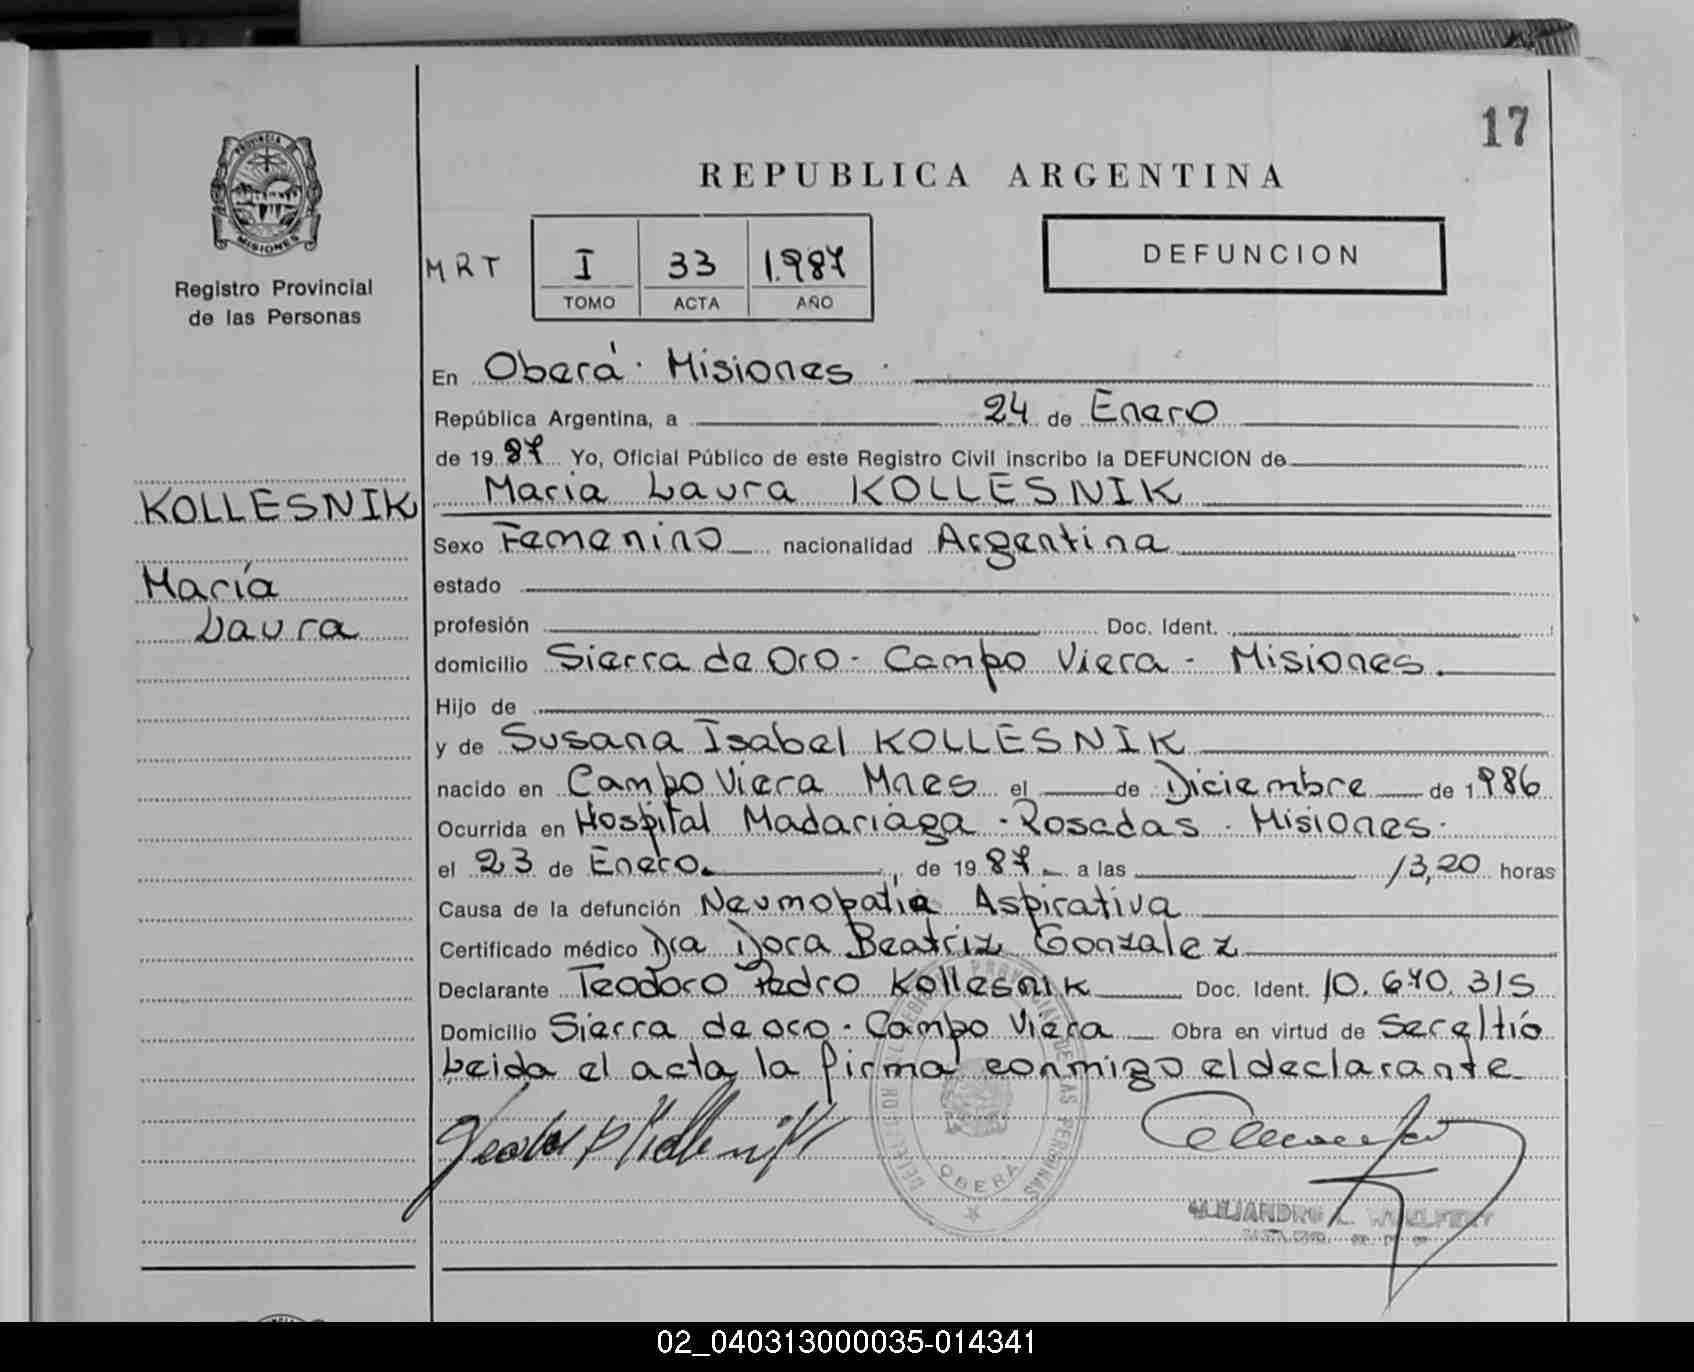 17
PROVINCIA DE
MISIONES
Registro Provincial
de las Personas
REPUBLICA ARGENTINA
MRT
I 33 1.987
TOMO ACTA AÑO
DEFUNCION
En Oberá · Misiones
República Argentina, a 24 de Enero
de 19 87 Yo, Oficial Público de este Registro Civil inscribo la DEFUNCION de
KOLLESNIK
María
Laura
Maria Laura KOLLESNIK
Sexo Femenino nacionalidad Argentina
estado
profesión Doc. Ident.
domicilio Sierra de Oro - Campo Viera - Misiones
Hijo de
y de Susana Isabel KOLLESNIK
nacido en Campo Viera Mnes el de Diciembre de 1986
Ocurrida en Hospital Madariaga - Posadas - Misiones
el 23 de Enero de 19 87 a las 13,20 horas
Causa de la defunción Neumopatia Aspirativa
Certificado médico Dra Dora Beatriz Gonzalez
Declarante Teodoro Pedro Kollesnik Doc. Ident. 10.670.315
Domicilio Sierra de oro - Campo Viera Obra en virtud de
Leida el acta la firma conmigo el declarante
OBERA
02_040313000035-014341